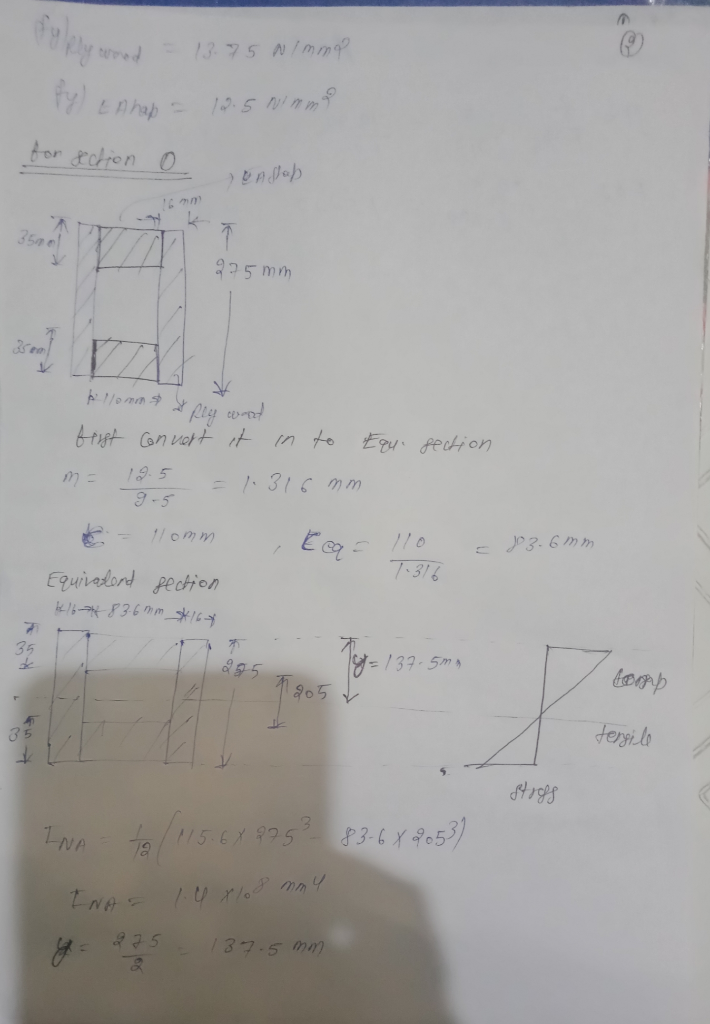 ②
fy) Ply wood = 13.75 N/mm²
fy) = 12.5 N/mm²
for section ①
16 mm
35mm
275 mm
35mm
110mm
Ply wood
first convert it in to Equ. section
m = 12.5 / 9.5 = 1.316 mm
= 110mm , teq = 110 / 1.316 = 83.6 mm
Equivalent section
16 83.6 mm 16
35 275 y = 137.5mm
205 comp
35 tensile
stress
INA = 1/12 (115.6 x 275³ - 83.6 x 205³)
INA = 1.4 x10⁸ mm⁴
y = 275 / 2 = 137.5 mm